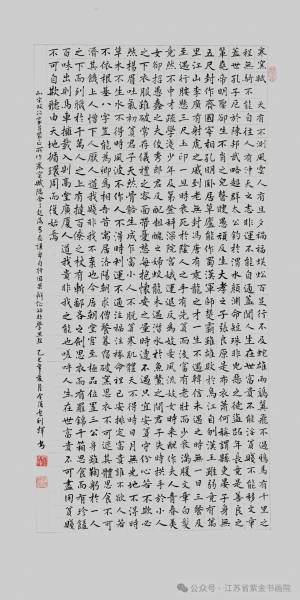 寒窯賦 天有不測風雲人有旦夕禍福蜈蚣百足行不及蛇雄雞翼飛不過鴉馬有千里之
程無騎不能自往人有沖天之志非運不能自通蓋聞人生在世富貴不能移文章
蓋世孔子厄於陳邦武略超群太公釣於渭水顏淵命短殊非兇惡之徒盜跖年長豈是善良之
輩堯帝明聖卻生不肖之兒瞽叟愚頑反生大孝之子張良原是布衣蕭何稱謂縣吏晏子身無
五尺封作齊國宰相孔明臥居草廬能作蜀漢軍師楚霸雖雄敗於烏江自刎漢王雖弱竟有萬
里江山李廣有射虎之威到老無封馮唐有乘龍之才一生不遇韓信未遇之時無一日三餐及
至遇行腰懸三尺玉印一旦時衰死於陰人之手有先貧而後富有老壯而少衰滿腹文章白髮
竟然不中才疏學淺少年及第登科深院宮娥運退反為妓妾風流妓女時來配作夫人青春美
女卻招愚蠢之夫俊秀郎君反配粗醜之婦蛟龍未遇潛水於魚鱉之間君子失時拱手於小人
之下衣服雖破常存儀禮之容面帶憂愁每抱懷安之量時遭不遇只宜安貧守份心若不欺必
然揚眉吐氣初貧君子天然骨骼生成乍富小人不脫貧寒肌體天不得時日月無光地不得時
草木不生水不得時風浪不平人不得時利運不通注福注祿命裡已安排定富貴誰不欲人若
不依根基八字豈能為卿為相吾昔寓居洛陽朝求僧餐暮宿破窯思衣不可遮其體思食不可
濟其饑上人憎下人厭人道我賤非我不棄也今居朝堂官至極品位置三公身雖鞠躬於一人
之下而列職於千萬人之上有撻百僚之杖有斬鄙吝之劍思衣而有羅錦千箱思食而有珍饈
百味出則入則高堂廣廈人道我貴非我之能也嗟呼人生在世富貴不可盡用貧賤
不可自欺聽由天地循環周而復始焉
公众号·江苏省紫金书画院